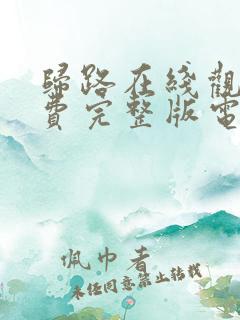 歸路在綫觀
費完整版電
佩巾者
未经同意禁止转载